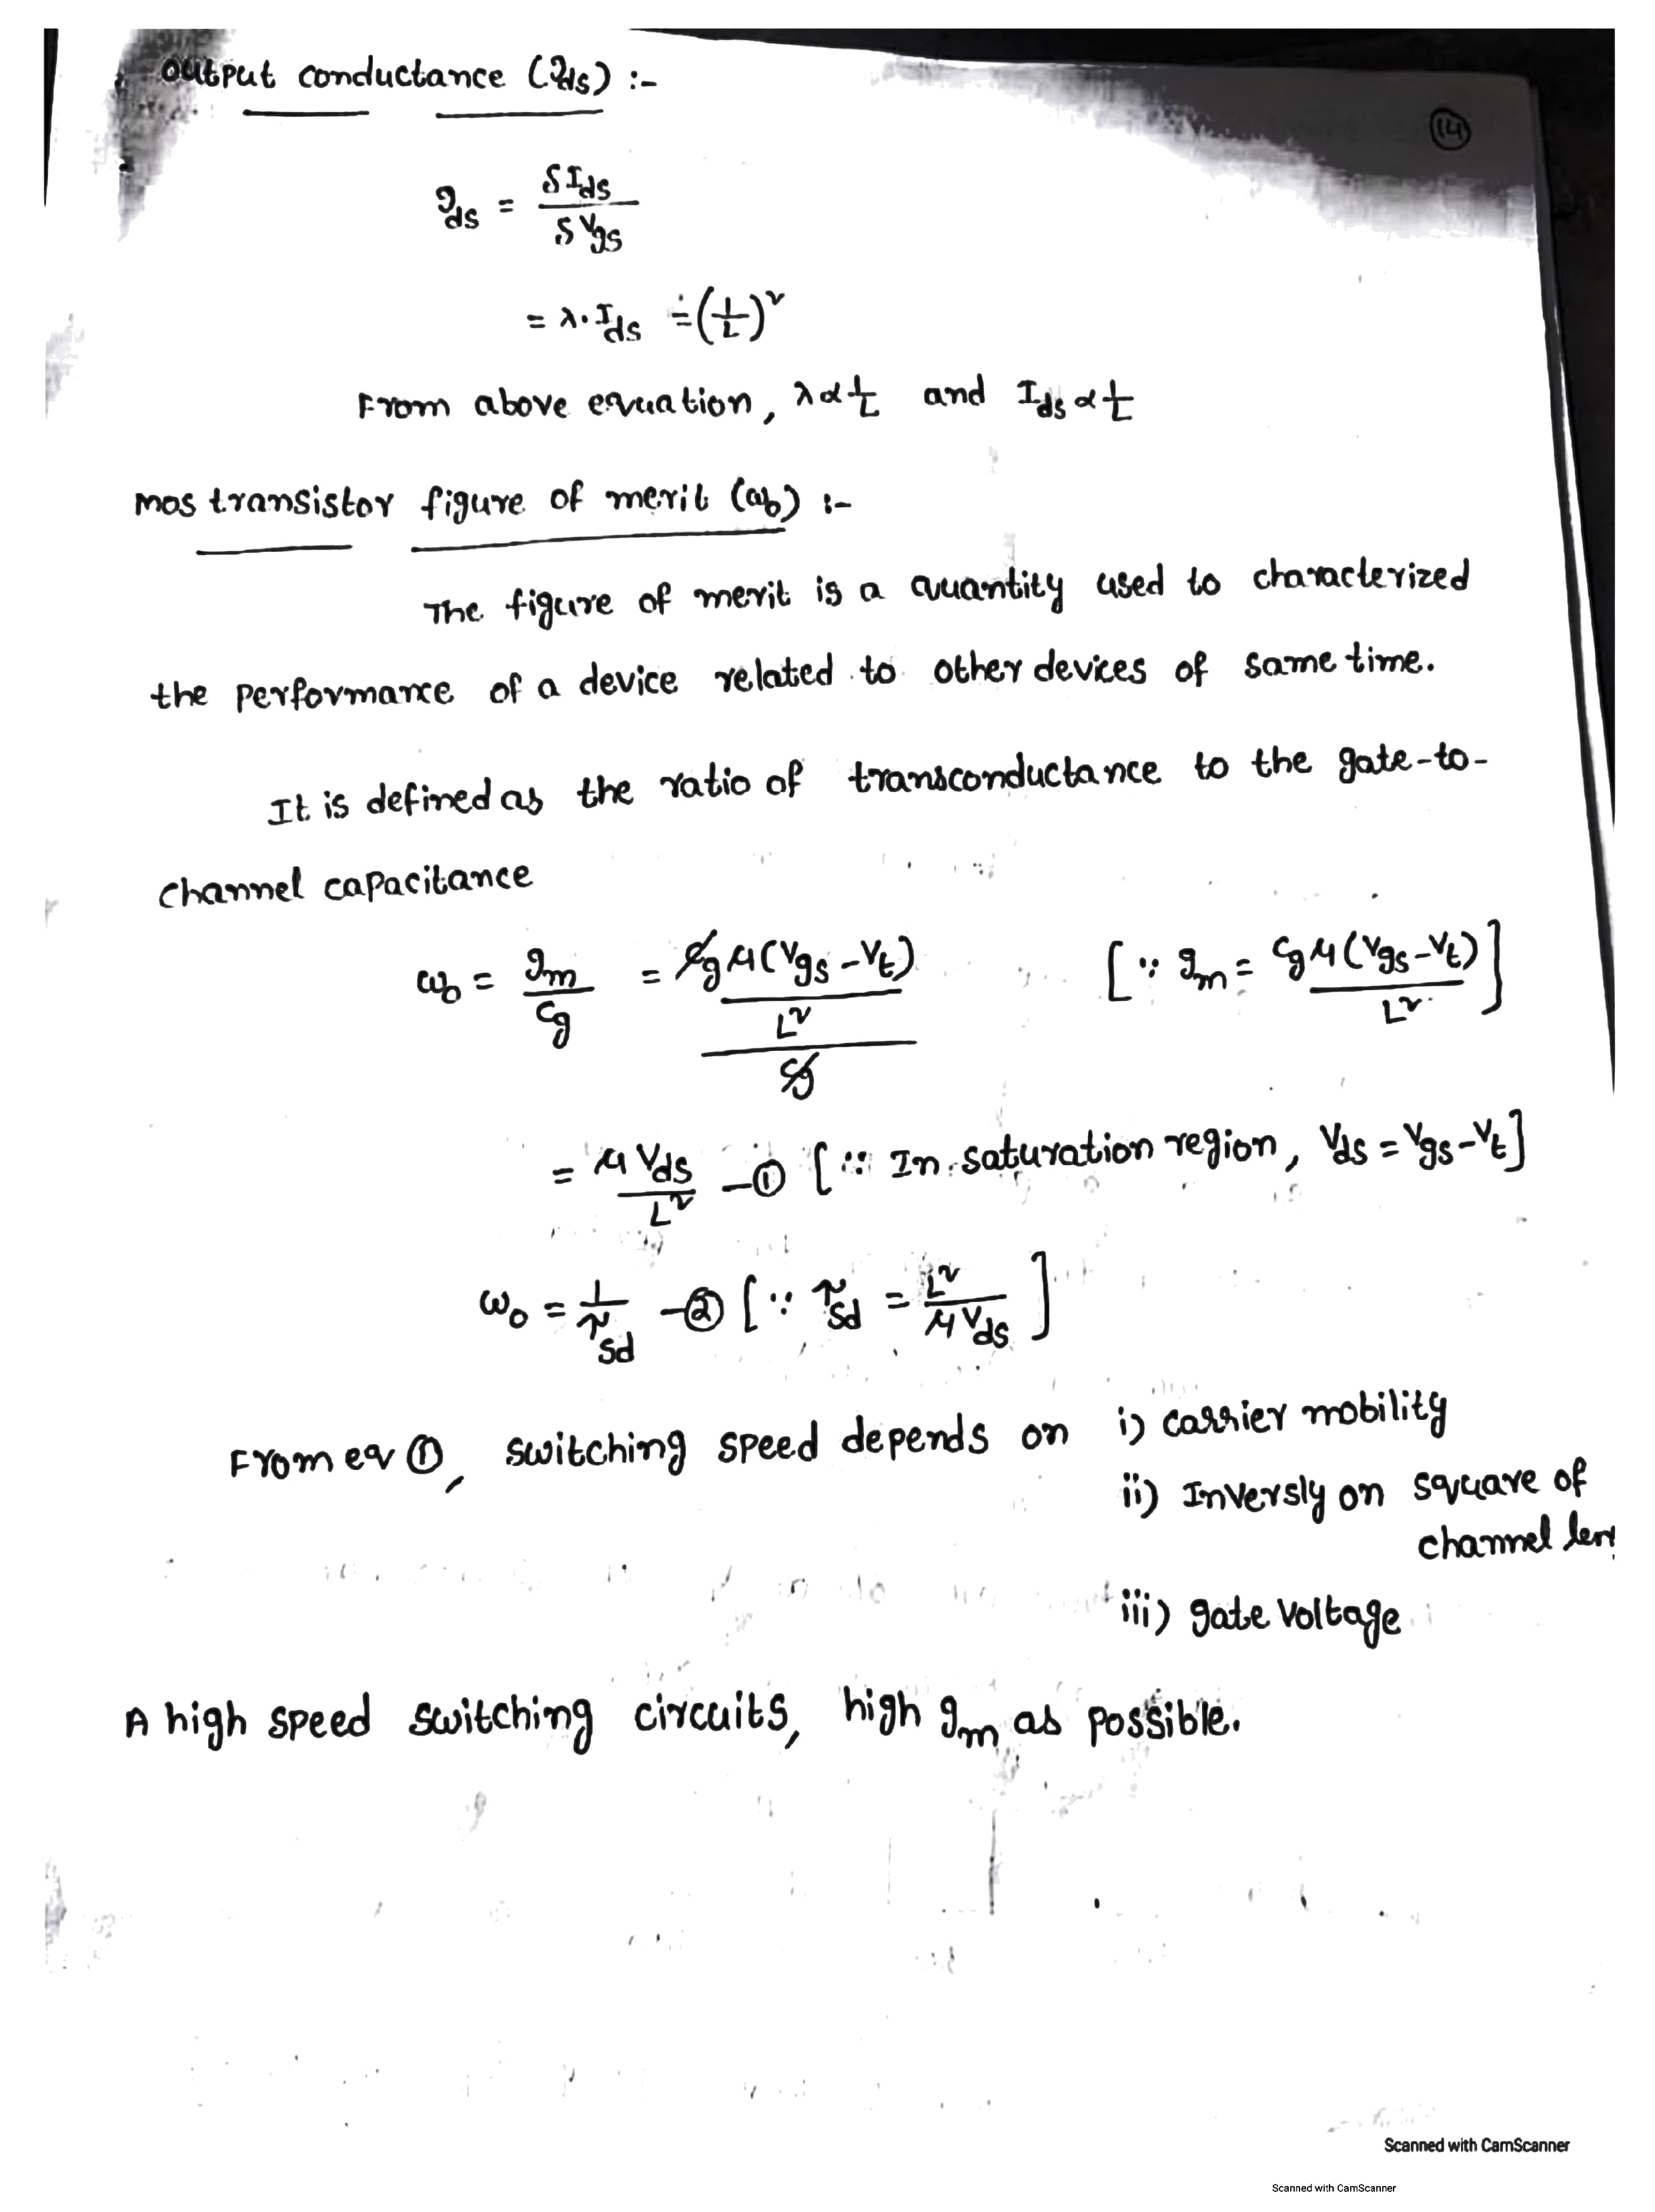 output conductance (gds) :-
14
gds = δIds / δVgs
= λ. Ids ≐ (1/L)²
From above equation, λ ∝ 1/L and Ids ∝ 1/L
mos transistor figure of merit (ω0) :-
The figure of merit is a quantity used to characterized
the performance of a device related to other devices of same time.
It is defined as the ratio of transconductance to the gate-to-
channel capacitance
ω0 = gm / Cg = (Cg μ(Vgs - Vt) / L²) / Cg [∵ gm = Cg μ(Vgs - Vt) / L²]
= μ Vds / L² - ① [∵ In saturation region, Vds = Vgs - Vt]
ω0 = 1 / τsd - ② [∵ τsd = L² / μ Vds]
From eq ①, switching speed depends on i) carrier mobility
ii) Inversly on square of
channel len
iii) gate voltage
A high speed switching circuits, high gm as possible.
Scanned with CamScanner
Scanned with CamScanner